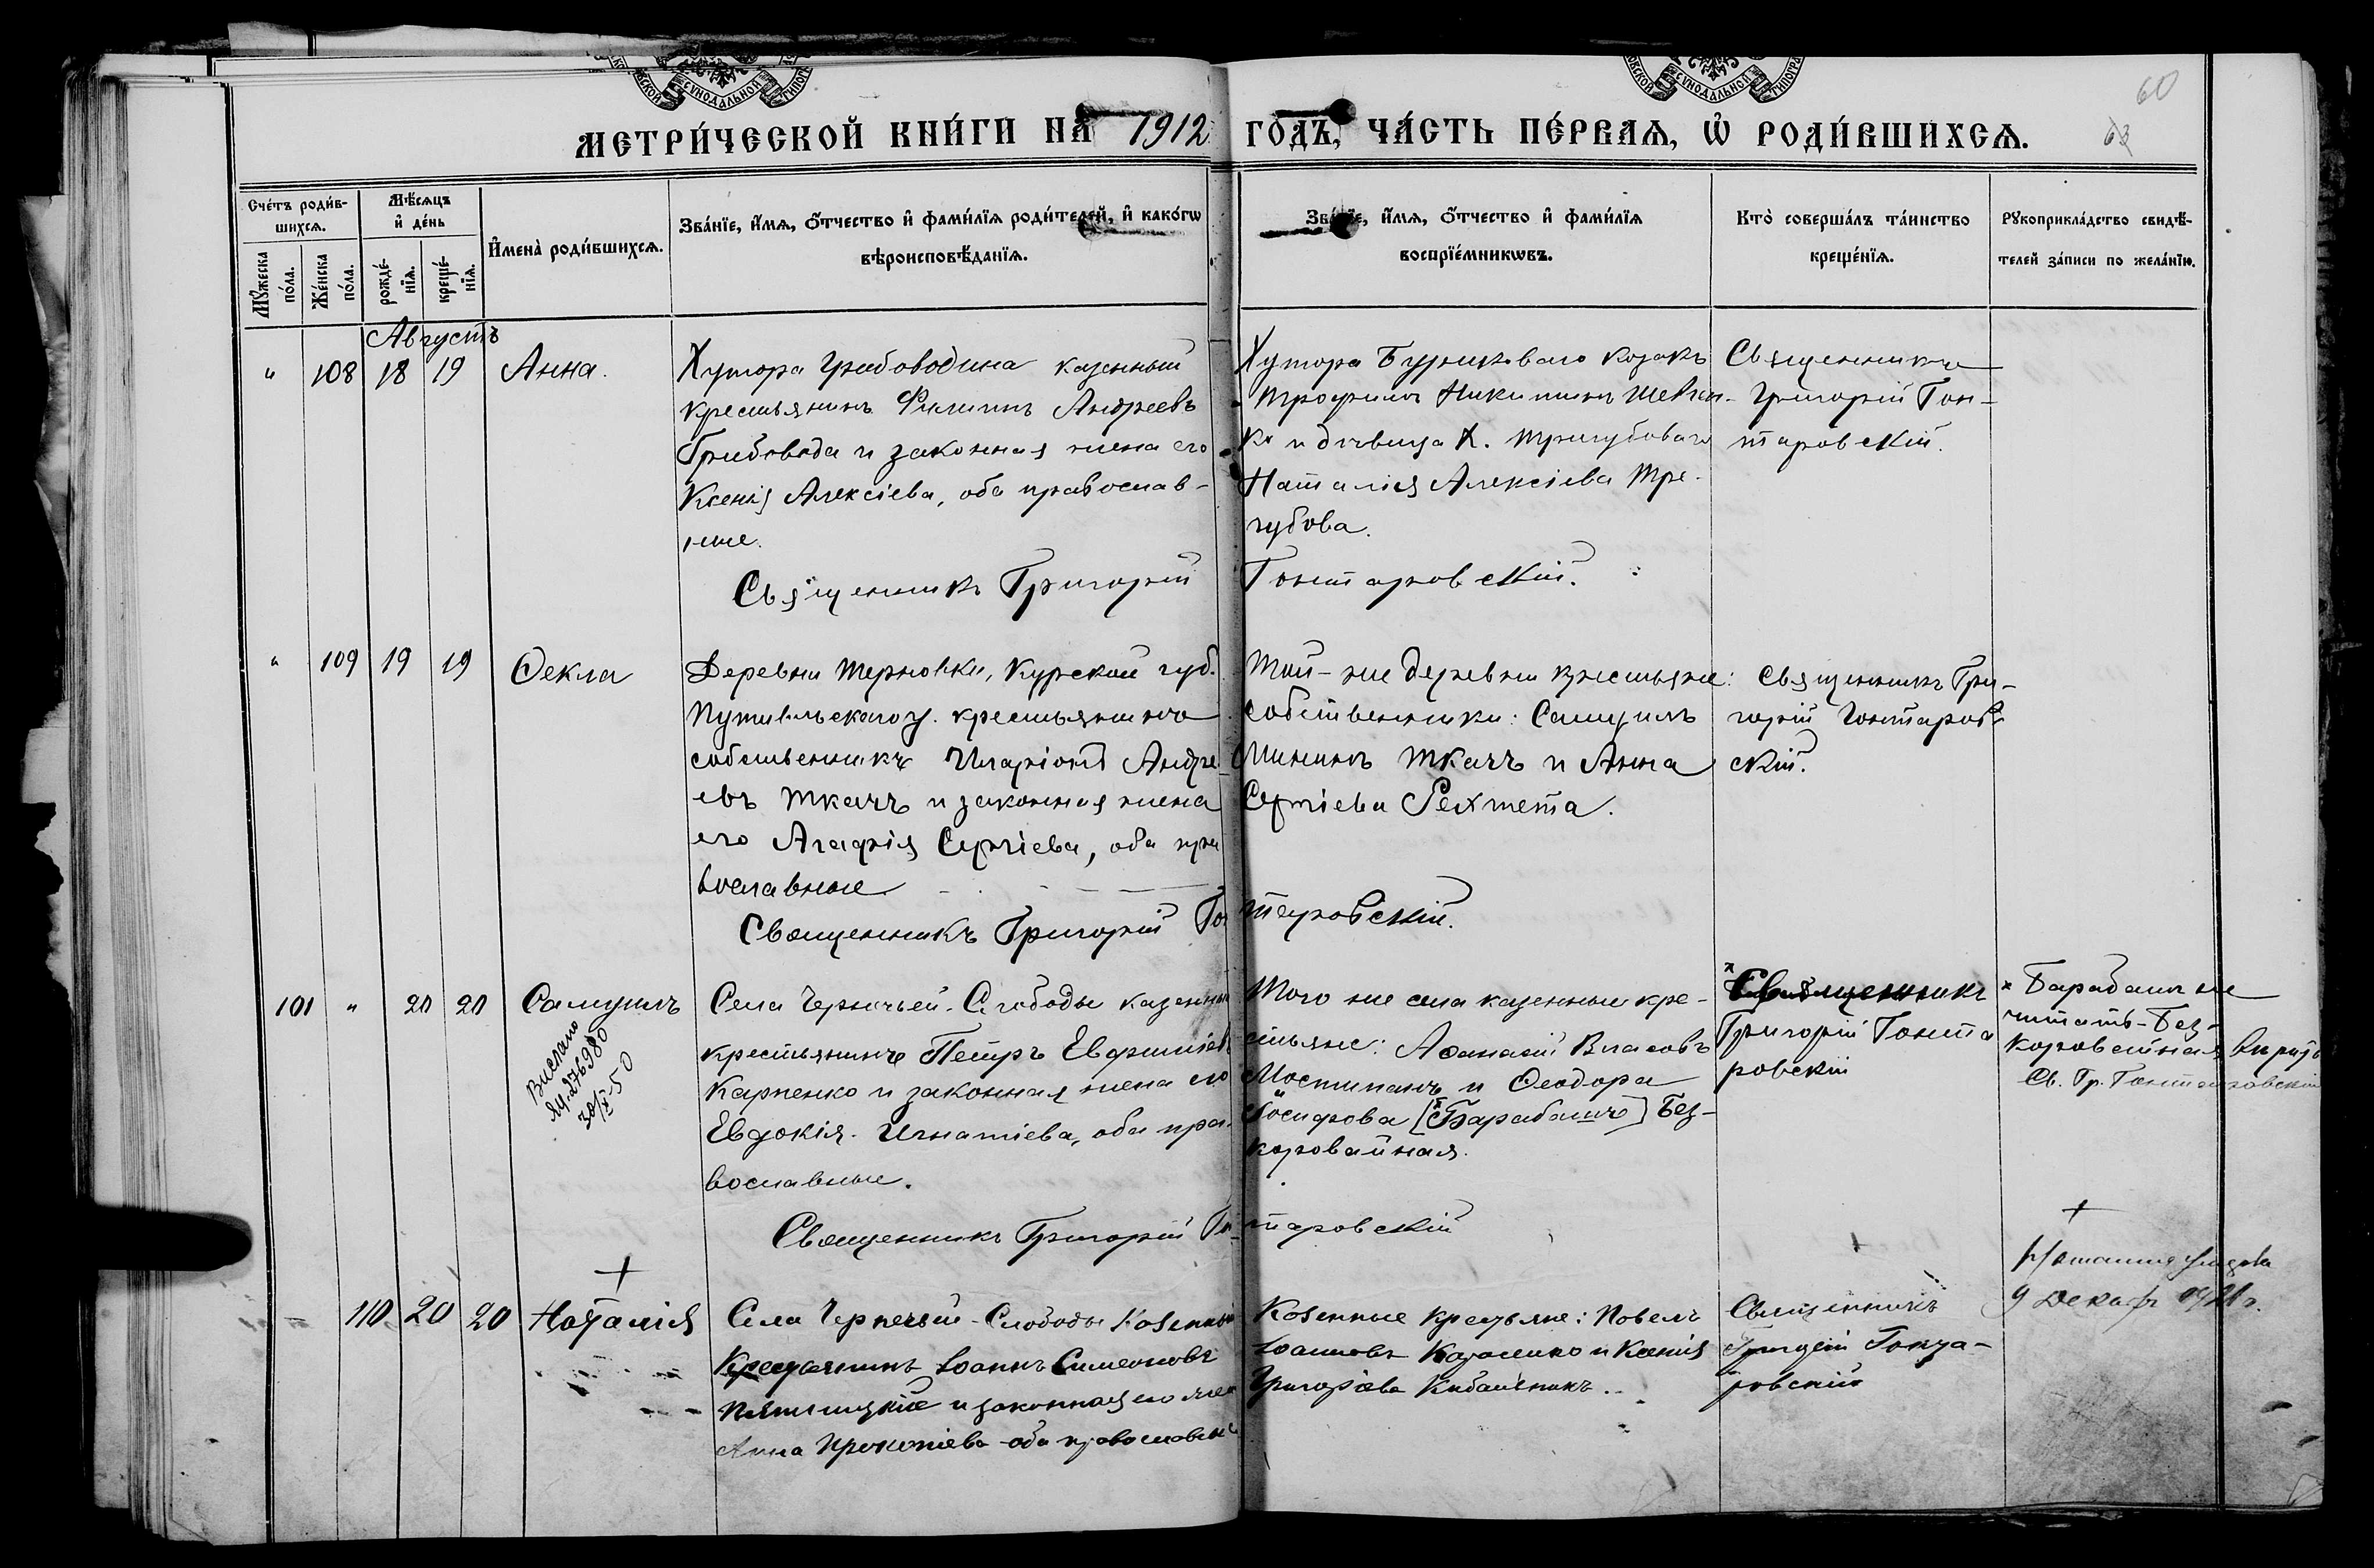 60
63
МЕТРИ́ЧЕСКОЙ КНИ́ГИ НА 1912 ГО́ДЪ, ЧА́СТЬ ПЕ́РВАѦ, Ѡ҆ РОДИ́ВШИХСѦ.
Сче́тъ роди́в-
шихсѧ.
Мꙋ́жеска
по́ла.
Же́нска
по́ла.
Мѣ́сѧцъ
и҆ де́нь
рожде́-
нїѧ.
креще́-
нїѧ.
И҆мена̀ роди́вшихсѧ.
Зва́нїе, и҆́мѧ, ѻ҆́тчество и҆ фами́лїѧ роди́телей, и҆ како́гѡ
вѣроисповѣ́данїѧ.
Зва́нїе, и҆́мѧ, ѻ҆́тчество и҆ фами́лїѧ
воспрїе́мникѡвъ.
Кто̀ соверша́лъ та́инство
креще́нїѧ.
Рꙋкоприкла́дство свидѣ́-
телей за́писи по жела́нїю.
Августъ
" 108 18 19 Анна.
Хутора Грибоводина казенный
крестьянинъ Филиппъ Андреевъ
Грибовода и законная жена его
Ксенія Алексіева, оба православ-
ные.
Хутора Бурикового козакъ
Трофимъ Никитинъ Шевчен-
ко и дѣвица х. Тригубоваго
Наталія Алексіева Тре-
губова.
Священникъ
Григорій Гон-
таровскій.
Священникъ Григорій Гонтаровскій.
" 109 19 19 Ѳекла
Деревни Терновки, Курской губ.
Путивльскаго у. крестьянинъ
собственникъ Иларіонъ Андре-
евъ Ткачъ и законная жена
его Агафія Сергіева, оба пра
вославные.
Той-же деревни крестьяне:
собственники: Самуилъ
Мининъ Ткачъ и Анна
Сергіева
Священникъ Гри-
горій Гонтаров-
скій.
Священникъ Григорій Гонтаровскій.
101 " 20 20 Самуилъ
Выслано
276980
30/IX-50
Села Чернечьей-Слободы казенный
крестьянинъ Петръ Евфиміевъ
Карпенко и законная жена его
Евдокія Игнатіева, оба пра-
вославные.
Того же села казенные кре-
стьяне: Аѳанасій Власовъ
Мостипанъ и Ѳеодора
Іосифова [Барабашъ] Без-
коровайная.
х Священникъ
Григорій Гонта
ровскій
х Барабашъ не
читать-Без-
коровайная вѣрить
Св. Гр. Гонтаровскій
Священникъ Григорій Гонтаровскій
- 110 20 20 Наталія
Села Чернечьей-Слободы Казенный
Крестьянинъ Іоаннъ Симеоновъ
и законная его жена
Анна Прокопіева оба православные
Казенные крестьяне: Павелъ
Іоанновъ и Ксенія
Григоріева
Священникъ
Григорій Гонта-
ровскій
Наталия
9 Декабр.